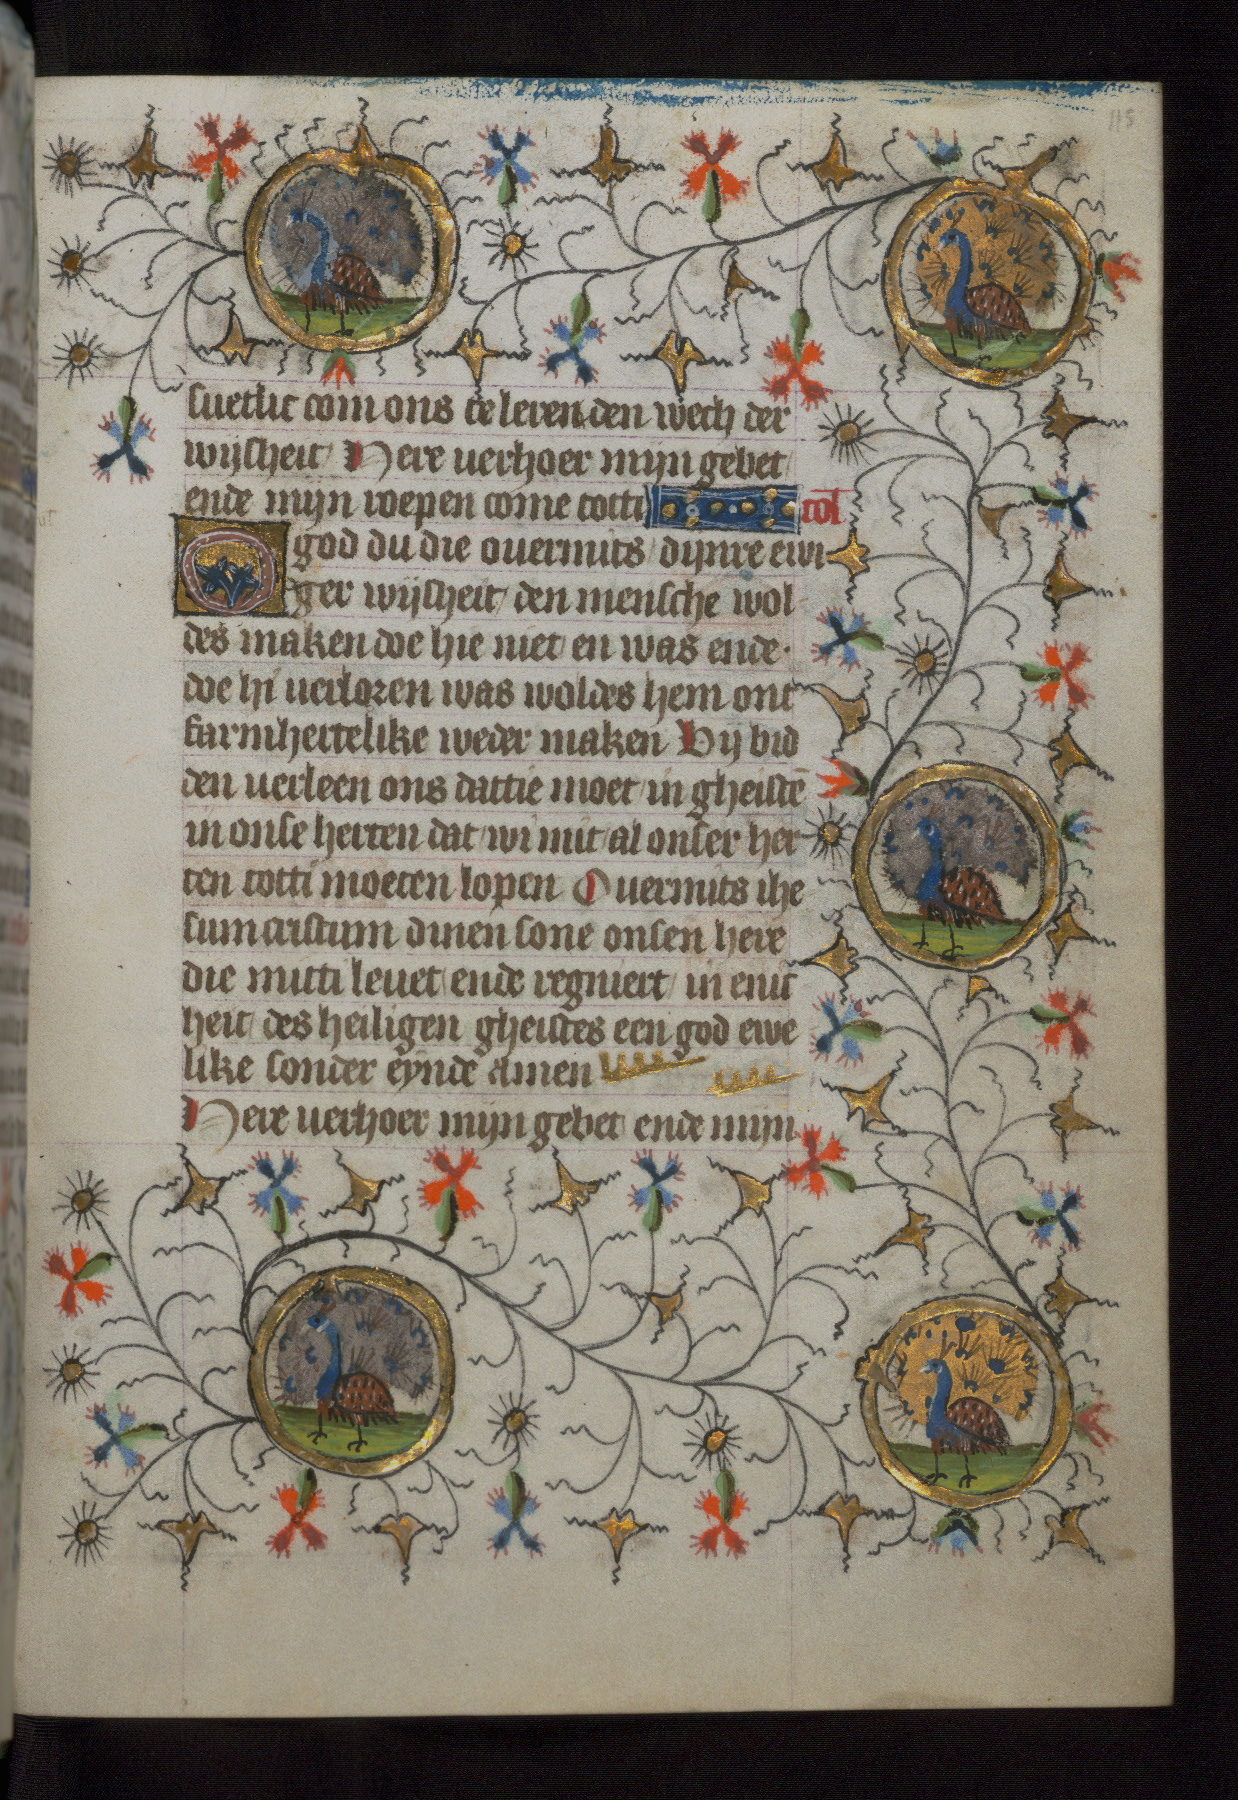 115
suetlic com ons te leren den wech der
wijsheit Here verhoer mijn gebet
ende mijn wepen come totti col
god du die overmits dijnre ewi
ger wijsheit den mensche wol
des maken doe hie niet en was ende
doe hi verloren was woldes hem ont
farmhertelike weder maken Wy bid
den verleen ons dattie moet in gheiste
in onse herten dat wi mit al onser her
ten totti moeten lopen Overmits ihe
sum cristum dinen sone onsen here
die mitti levet ende regniert in enic
heit des heiligen gheistes een god ewe
like sonder eynde Amen
Here verhoer mijn gebet ende mijn